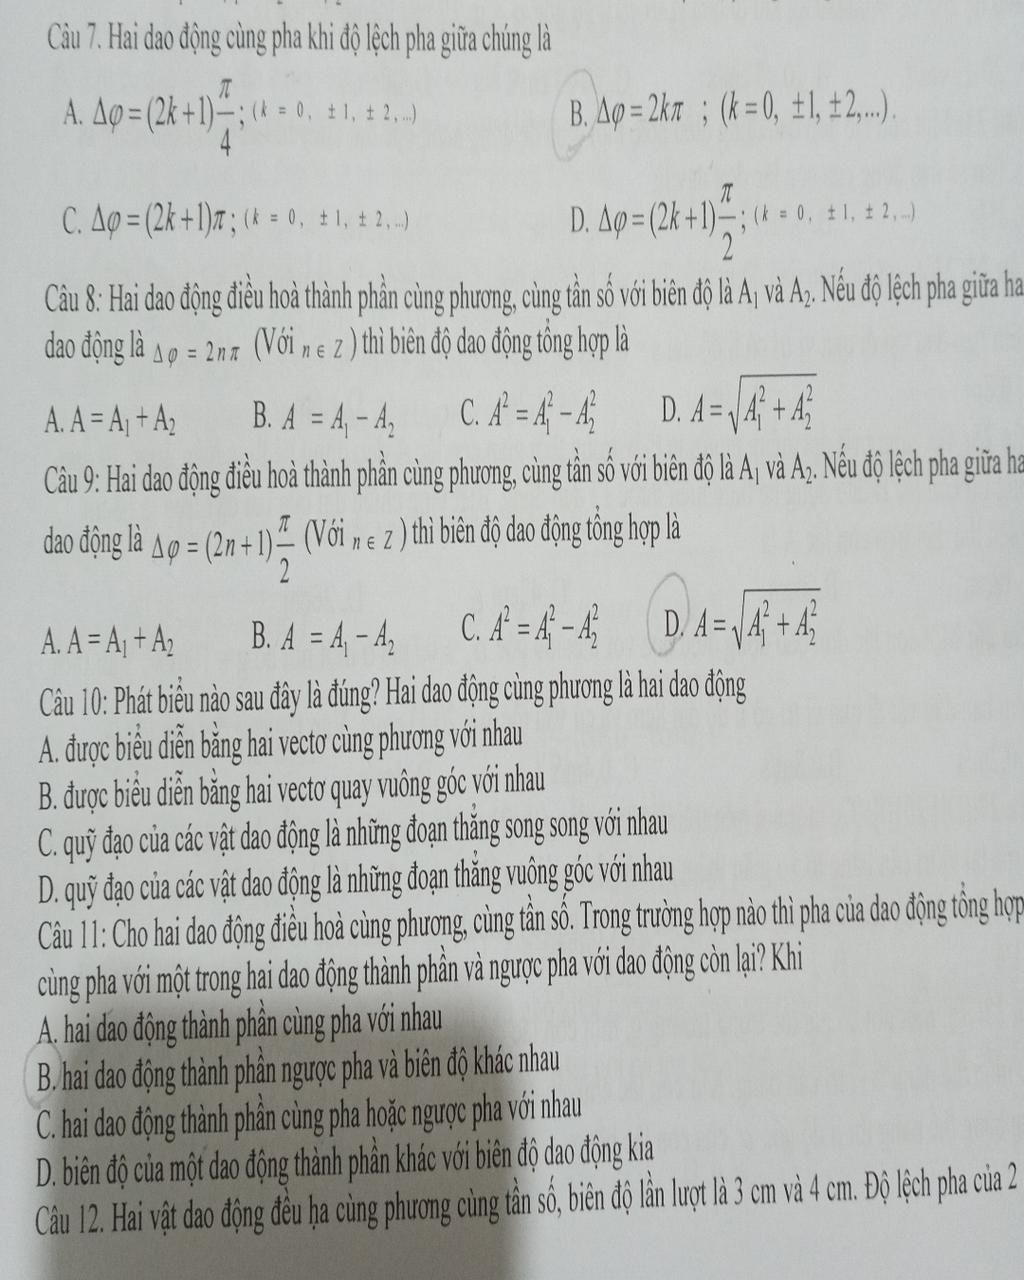 Câu 7. Hai dao động cùng pha khi độ lệch pha giữa chúng là
A. Δφ = (2k + 1)π/4; (k = 0, ±1, ±2,...) B. Δφ = 2kπ ; (k = 0, ±1, ±2,...).
C. Δφ = (2k + 1)π; (k = 0, ±1, ±2,...) D. Δφ = (2k + 1)π/2; (k = 0, ±1, ±2,...)
Câu 8: Hai dao động điều hoà thành phần cùng phương, cùng tần số với biên độ là A₁ và A₂. Nếu độ lệch pha giữa ha
dao động là Δφ = 2nπ (Với n ∈ Z ) thì biên độ dao động tổng hợp là
A. A = A₁ + A₂ B. A = A₁ − A₂ C. A² = A₁² − A₂² D. A = √(A₁² + A₂²)
Câu 9: Hai dao động điều hoà thành phần cùng phương, cùng tần số với biên độ là A₁ và A₂. Nếu độ lệch pha giữa ha
dao động là Δφ = (2n + 1)π/2 (Với n ∈ Z ) thì biên độ dao động tổng hợp là
A. A = A₁ + A₂ B. A = A₁ − A₂ C. A² = A₁² − A₂² D. A = √(A₁² + A₂²)
Câu 10: Phát biểu nào sau đây là đúng? Hai dao động cùng phương là hai dao động
A. được biểu diễn bằng hai vectơ cùng phương với nhau
B. được biểu diễn bằng hai vectơ quay vuông góc với nhau
C. quỹ đạo của các vật dao động là những đoạn thẳng song song với nhau
D. quỹ đạo của các vật dao động là những đoạn thẳng vuông góc với nhau
Câu 11: Cho hai dao động điều hoà cùng phương, cùng tần số. Trong trường hợp nào thì pha của dao động tổng hợp
cùng pha với một trong hai dao động thành phần và ngược pha với dao động còn lại? Khi
A. hai dao động thành phần cùng pha với nhau
B. hai dao động thành phần ngược pha và biên độ khác nhau
C. hai dao động thành phần cùng pha hoặc ngược pha với nhau
D. biên độ của một dao động thành phần khác với biên độ dao động kia
Câu 12. Hai vật dao động đều hạ cùng phương cùng tần số, biên độ lần lượt là 3 cm và 4 cm. Độ lệch pha của 2